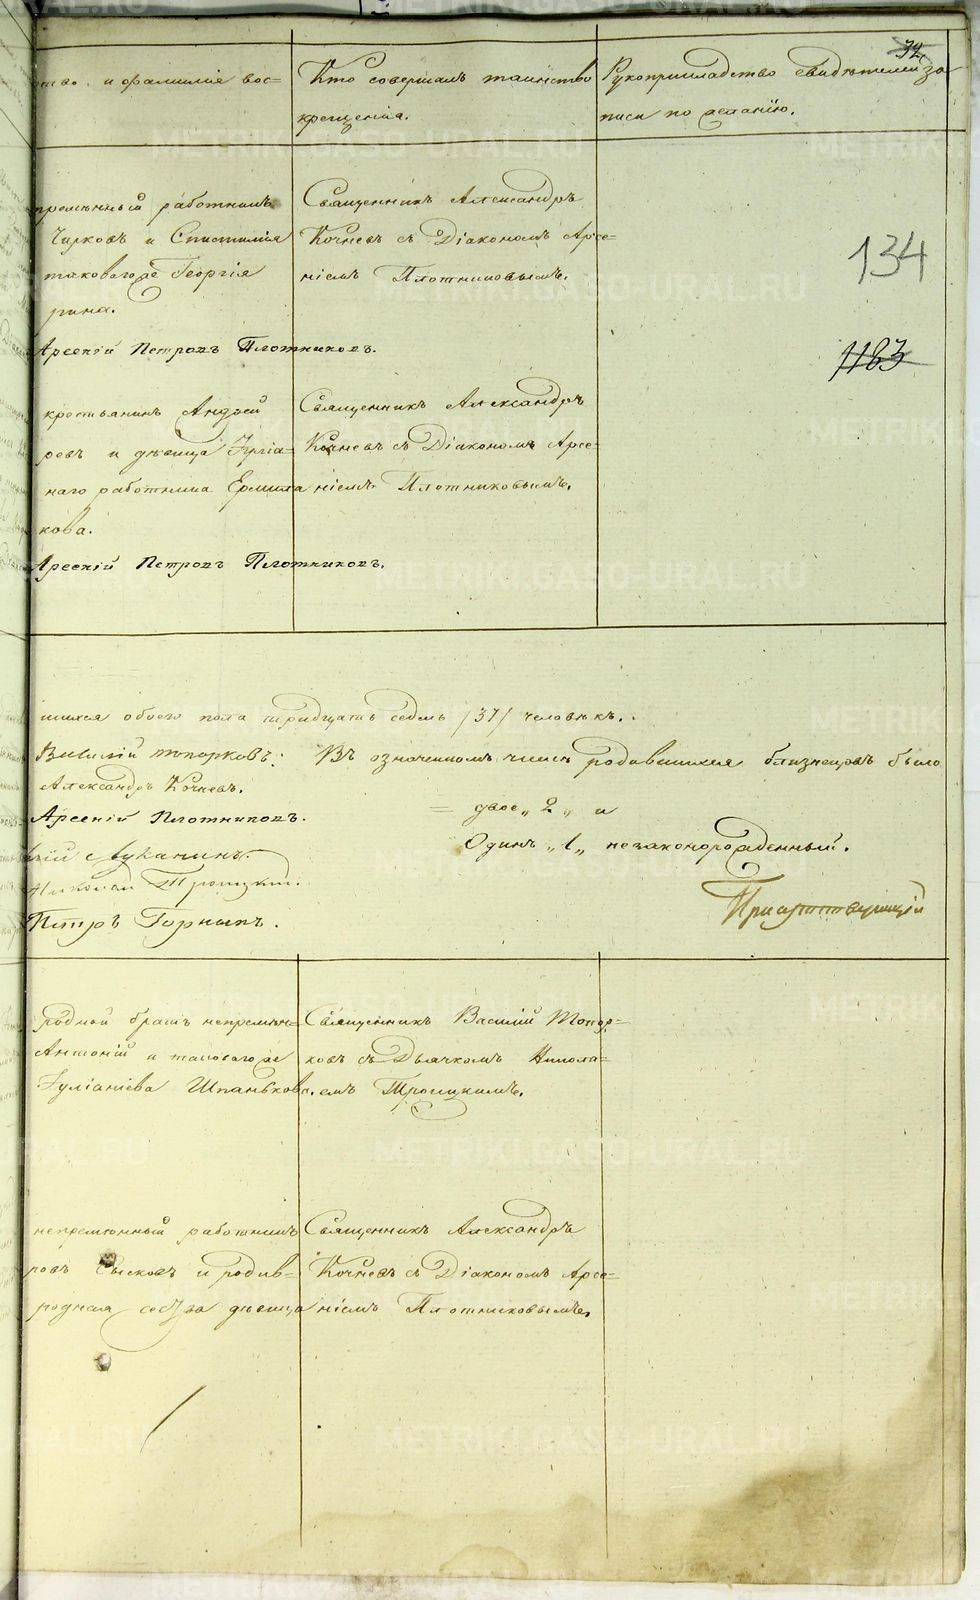 32.
ство, и фамилія вос=
Кто совершалъ таинство
крещенія.
Рукоприкладство свидѣтелей за
писи по желанію.
134
1183
премѣнный работникъ
Чирковъ и
таковагоже Георгія
рина.
Священникъ Александръ
Кочневъ съ Діакономъ Арсе=
ніемъ Плотниковымъ.
Арсеній Петровъ Плотниковъ.
крестьянинъ Андрей
ревъ и дѣвица Іуліа=
наго работника Ермила
кова.
Священникъ Александръ
Кочневъ съ Діакономъ Арсе=
ніемъ Плотниковымъ.
Арсеній Петровъ Плотниковъ.
шихся обоего пола тридцать седмь /37/ человѣкъ.
Василій Топорковъ.
Александръ Кочневъ.
Арсеній Плотниковъ.
Луканинъ.
Николай Троицкій.
Петръ Горныхъ.
Въ означенномъ числѣ родившихся близнецовъ было
= двое „2„ и
Одинъ „1„ незаконорожденный.
Присутствующій
родной братъ непремѣн=
Антоній и таковагоже
Іуліаніева Шпанькова.
Священникъ Василій Топор=
ковъ съ Дьячкомъ Никола=
емъ Троицкимъ.
непремѣнный работникъ
ровъ Сысковъ и родив=
родная сестра дѣвица
Священникъ Александръ
Кочневъ съ Діакономъ Арсе=
ніемъ Плотниковымъ.
METRIKI.GASO-URAL.RU